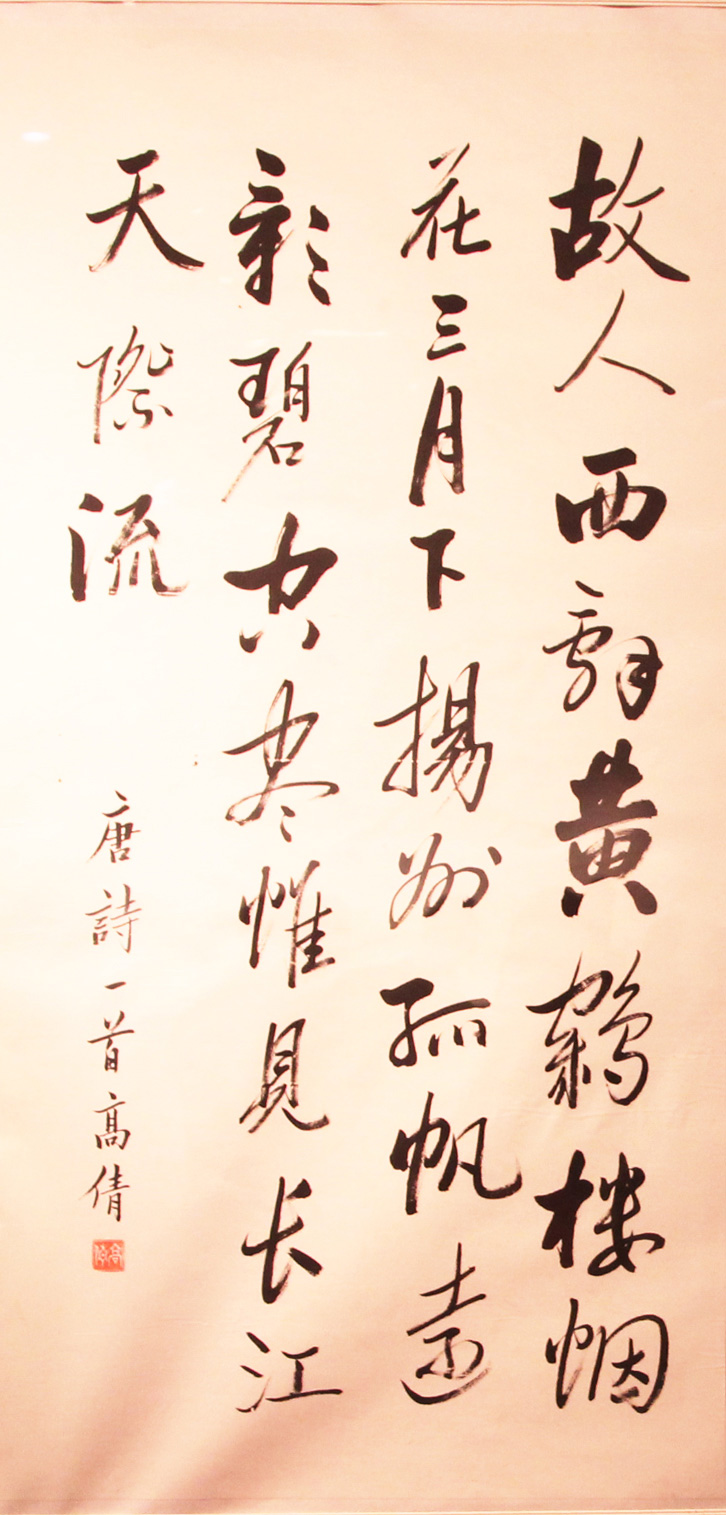 故人西辞黄鹤楼烟
花三月下揚州孤帆遠
影碧空尽惟見长江
天際流
唐詩一首高倩